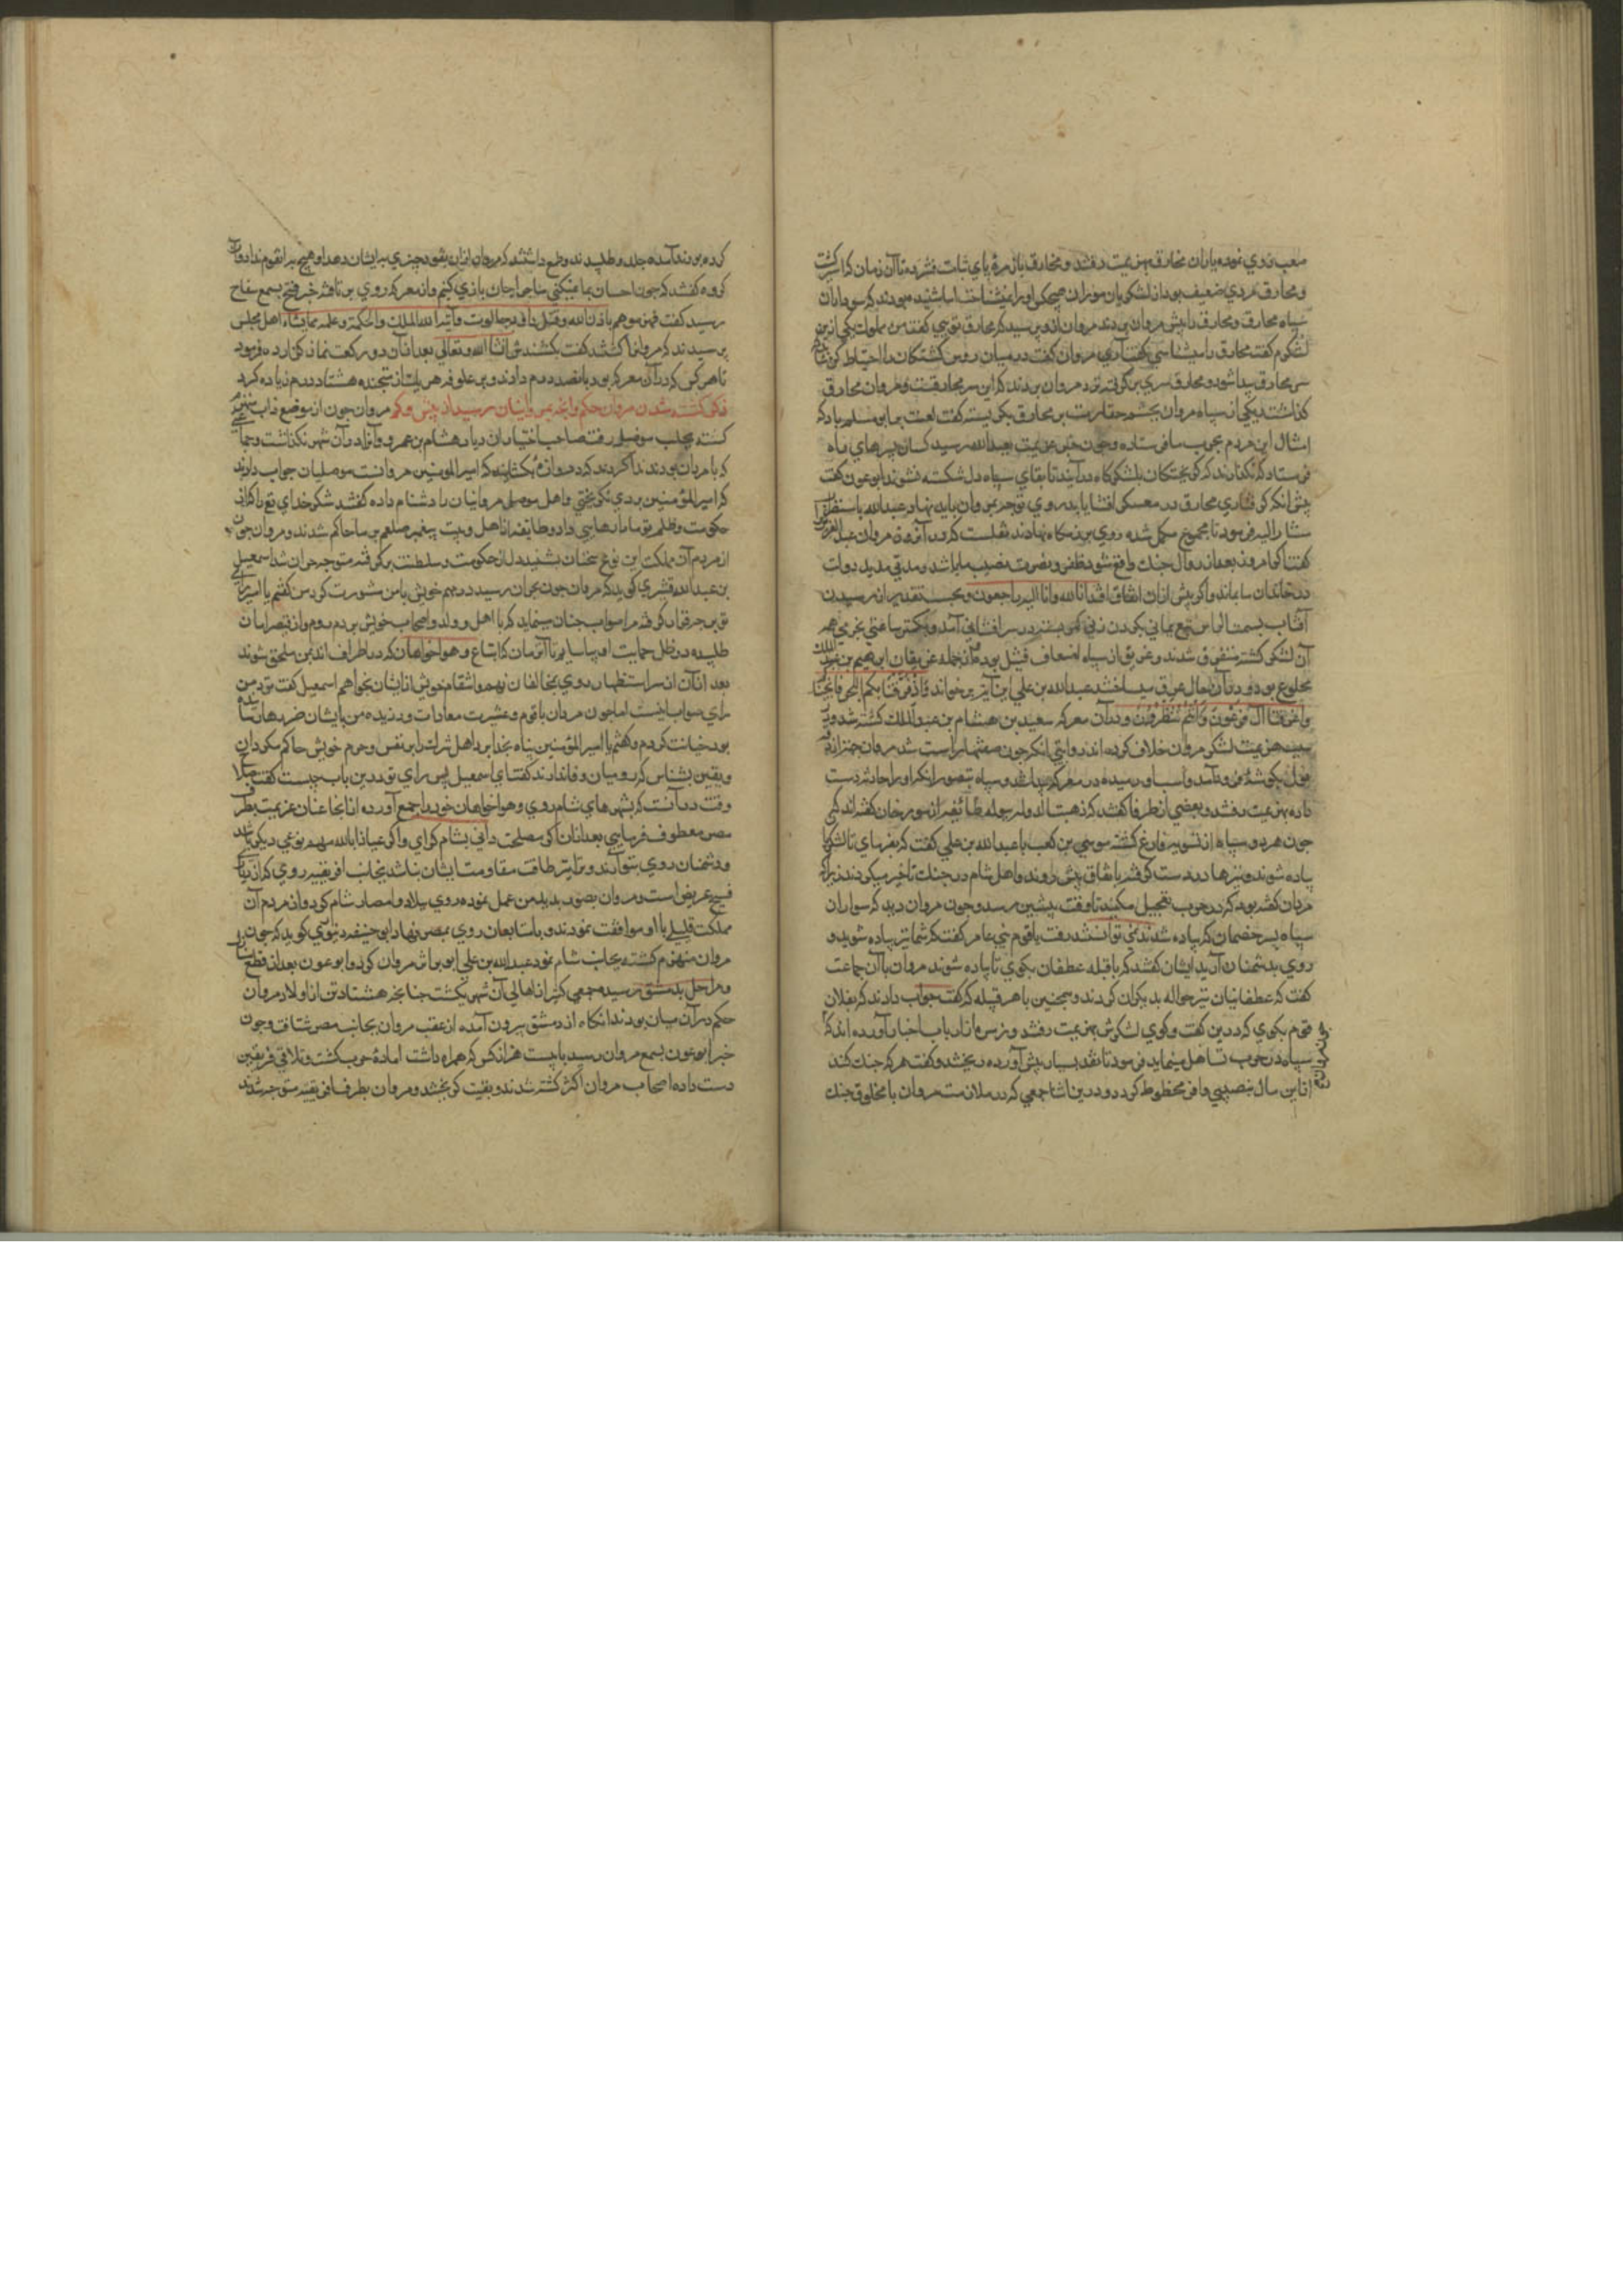 صعب روی نموده یاران مخارق بهزیمت رفتند و مخارق باز مرهٔ پای ثبات فشرده تا آن زمان که اسیر کشت
و مخارق مردی ضعیف بود از لشکریان مروان هیچکس او را نمیشناخت اما شنیده بودند که سودا زان
سپاه مخارق و مخارق را پیش مروان بردند مروان ازو پرسید که مخارق تویی کفت من مملوک یکی ازین
لشکرم کفت مخارق را میشناسی کفت آری مروان کفت در میان رؤس کشتکان را احتیاط کن تا
سر مخارق پیدا شود و مخارق سری بر کرفته نزد مروان بردند که این سر مخارقست و مروان مخارق
کذاشت یکی از سپاه مروان بچشم حقارت بر مخارق نکریسته کفت لعنت بر ابو مسلم باد که
امثال این مردم بحرب ما فرستاده و چون خبر هزیمت بعبدالله رسید کسان بر سر های راه
فرستاد که نکذارند که کریختکان بلشکرکاه در آیند تا بقای سپاه دل شکسته نشوند ابو عون کفت
پیش انکه کرفتاری مخارق در معسکر افشا یابد روی توجه بمروان باید نهاد و عبدالله باستظهار
مشار الیه فرمود تا مجموع مکمل شده روی برزمکاه نهادند
کفت اکر امروز بعد از زوال جنک واقع شود ظفر و نصرت نصیب ما باشد و مدتی مدید دولت
در خاندان ما ماند و اکر پیش ازان اتفاق افتد انا لله و انا الیه راجعون و بحسب تقدیر از رسیدن
آفتاب بسمت الراس
آن لشکر کشته متفرق شدند و غریق از سپاه اضعاف قتیل بود از جمله غریقان ابرهیم بن عبد الملک
مخلوع بود و دران حال عبدالله بن علی این آیت برخواند و اذ فرقنا بکم البحر فانجیناکم
واغرقنا آل فرعون و انتم تنظرون و دران معرکه سعید بن هشام بن عبد الملک کشته شد و در
سبب هزیمت لشکر مروان خلاف کرده اند روایتی انکه چون صفها راست شد مروان جهت اراقه
بول بکوشهٔ فرود آمد و اسب او رمیده در معرکه پیدا شد و سپاه بتصور انکه او را حادثه دست
داده بهزیمت رفتند و بعضی از ظرفا کفتند که ذهبت الدولة ببوله طایفه از مورخان کفته اند که
چون هر دو سپاه از تسویه فارغ کشته موسی بن کعب با عبدالله بن علی کفت که بفرمای تا لشکر ما
پیاده شوند و نیزها در دست کرفته باتفاق پیش روند و اهل شام در جنک تأخیر میکردند زیرا که
مروان کفته بود که در حرب تعجیل مکنید تا وقت پیشین رسد و چون مروان دید که سواران
سپاه خصمان که پیاده شدند
روی بدشمنان آرید ایشان کفتند که با قبیله عطفان بکوی تا پیاده شوند مروان با آن جماعت
کفت که عطفانیان نیز حواله بدیکران کردند و همچنین با هر قبیله که کفت جواب دادند که بفلان
قوم بکوی که درین کفت و کوی لشکرش بهزیمت رفتند و زمرهٔ از ارباب اخبار آورده اند که
سپاه در حرب تساهل مینماید فرمود تا نقد بسیار پیش آورده ریختند و کفت هر که جنک کند
از این مال بنصیبی وافر محظوظ کردد و درین اثنا جمعی که در ملازمت مروان با مخالف جنک
کرده بودند آمده جلد و طلبیدند و طمع داشتند که مروان ازان نقود چیزی بدیشان دهد او هیچ بدان قوم نداد و آن
کروه کفتند که چون احسان بما نمیکنی ما چرا جان بازی کنیم و از معرکه روی برتافتند خبر فتح بسمع سفاح
رسید کفت فهزموهم باذن الله و قتل داود جالوت و آتیه الله الملک والحکمة و علمه مما یشاء اهل مجلس
پرسیدند که مروان را کشتند کفت بکشندش انشا الله تعالی بعد ازان دو رکعت نماز کزارده فرمود
تا هر کس که دران معرکه بود پانصد درم دادند
ذکر کشته شدن مروان حکم
کشته بجانب موصل رفت صاحب اختیار ان دیار هشام بن عمرو
که با مروان بودند ندا کردند که دروازه بکشایید که امیر المؤمنین مروانست موصلیان جواب دادند
که امیر المؤمنین بودی نکریختی و اهل موصل مروانیان را دشنام داده کفتند شکر خدای تع را که از
حکومت و ظلم تو ما را رهایی داد و طایفه از اهل و بیت پیغمبر صلعم بر ما حاکم شدند و مروان چون
از مردم آن مملکت این نوع سخنان بشنید دل از حکومت و سلطنت برکرفته متوجه حران شد اسمعیل
بن عبدالله قشیری کوید که مروان چون بحران رسید در مهم خویش با من مشورت کرد من کفتم یا امیر رای
تو بر چه قرار کرفته مرا صواب چنان مینماید که با اهل و ولد و اصحاب خویش بروم و از قیصر امان
طلبیده در ظل حمایت او بیاسایم تا آنزمان که اتباع و هواخواهان که در اطراف اند بمن ملحق شوند
بعد ازان از سر استظهار روی بمخالفان نهم و انتقام خویش از ایشان بخواهم اسمعیل کفت نزد من
رای صواب اینست اما چون مروان با قوم و عشیرت معادات ورزیده من بایشان ضررها رسانیده
بود خیانت کردم و کفتم یا امیر المؤمنین پناه بخدا بر اهل شرک را بر نفس و حرم خویش حاکم مکردان
و یقین بشناس که رومیان وفا ندارند کفت ای اسمعیل پس رای تو درین باب چیست کفتم صلاح
وقت در آنست که بشهرهای شام روی و هواخواهان خود را جمع آورده ازانجا عنان عزیمت بطرف
مصر معطوف فرمایی بعد ازان اکر مصلحت دانی بشام کرای و اکر عیاذا بالله مهم بنوعی دیکر باشد
و دشمنان روی بتو آرند و ترا نیز طاقت مقاومت ایشان نباشد بجانب افریقیه روی که ان دیار
فسیح عریض است و مروان بصوابدید من عمل نموده روی ببلاد و امصار شام کرد و از مردم آن
مملکت قلیلی با او موافقت نمودند و با متابعان روی بمصر نهاد ابو حنیفه دینوری کوید که چون
مروان منهزم کشته بجانب شام نمود عبدالله بن علی ابو عون را بر اثر مروان کرد و ابو عون بعد از قطع منازل
و مراحل بدمشق رسیده جمعی کثیر از اهالی آن شهر بکشت چنانچه هشتاد تن از اولاد مروان
حکم در آن میان بودند انکاه از دمشق بیرون آمده از عقب مروان بجانب مصر شتافت و چون
خبر ابو عون بسمع مروان رسید بایست هر انکس که همراه داشت آمادهٔ حرب کشت و تلاقی فریقین
دست داده اصحاب مروان اکثر کشته شدند و بقیت کریختند و مروان بطرف افریقیه متوجه شد